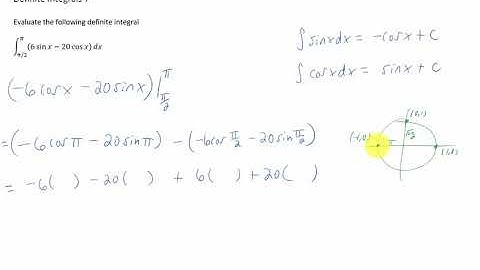 Evaluate the following definite integral
∫_{π/2}^{π} (6 sin x − 20 cos x) dx
∫ sinx dx = −cosx + C
∫ cosx dx = sinx + C
(−6cosx − 20sinx)|_{π/2}^{π}
= (−6cosπ − 20sinπ) − (−6cos π/2 − 20sin π/2)
= −6( ) − 20( ) + 6( ) + 20( )
(0,1)
π/2
(−1,0) π
(1,0)